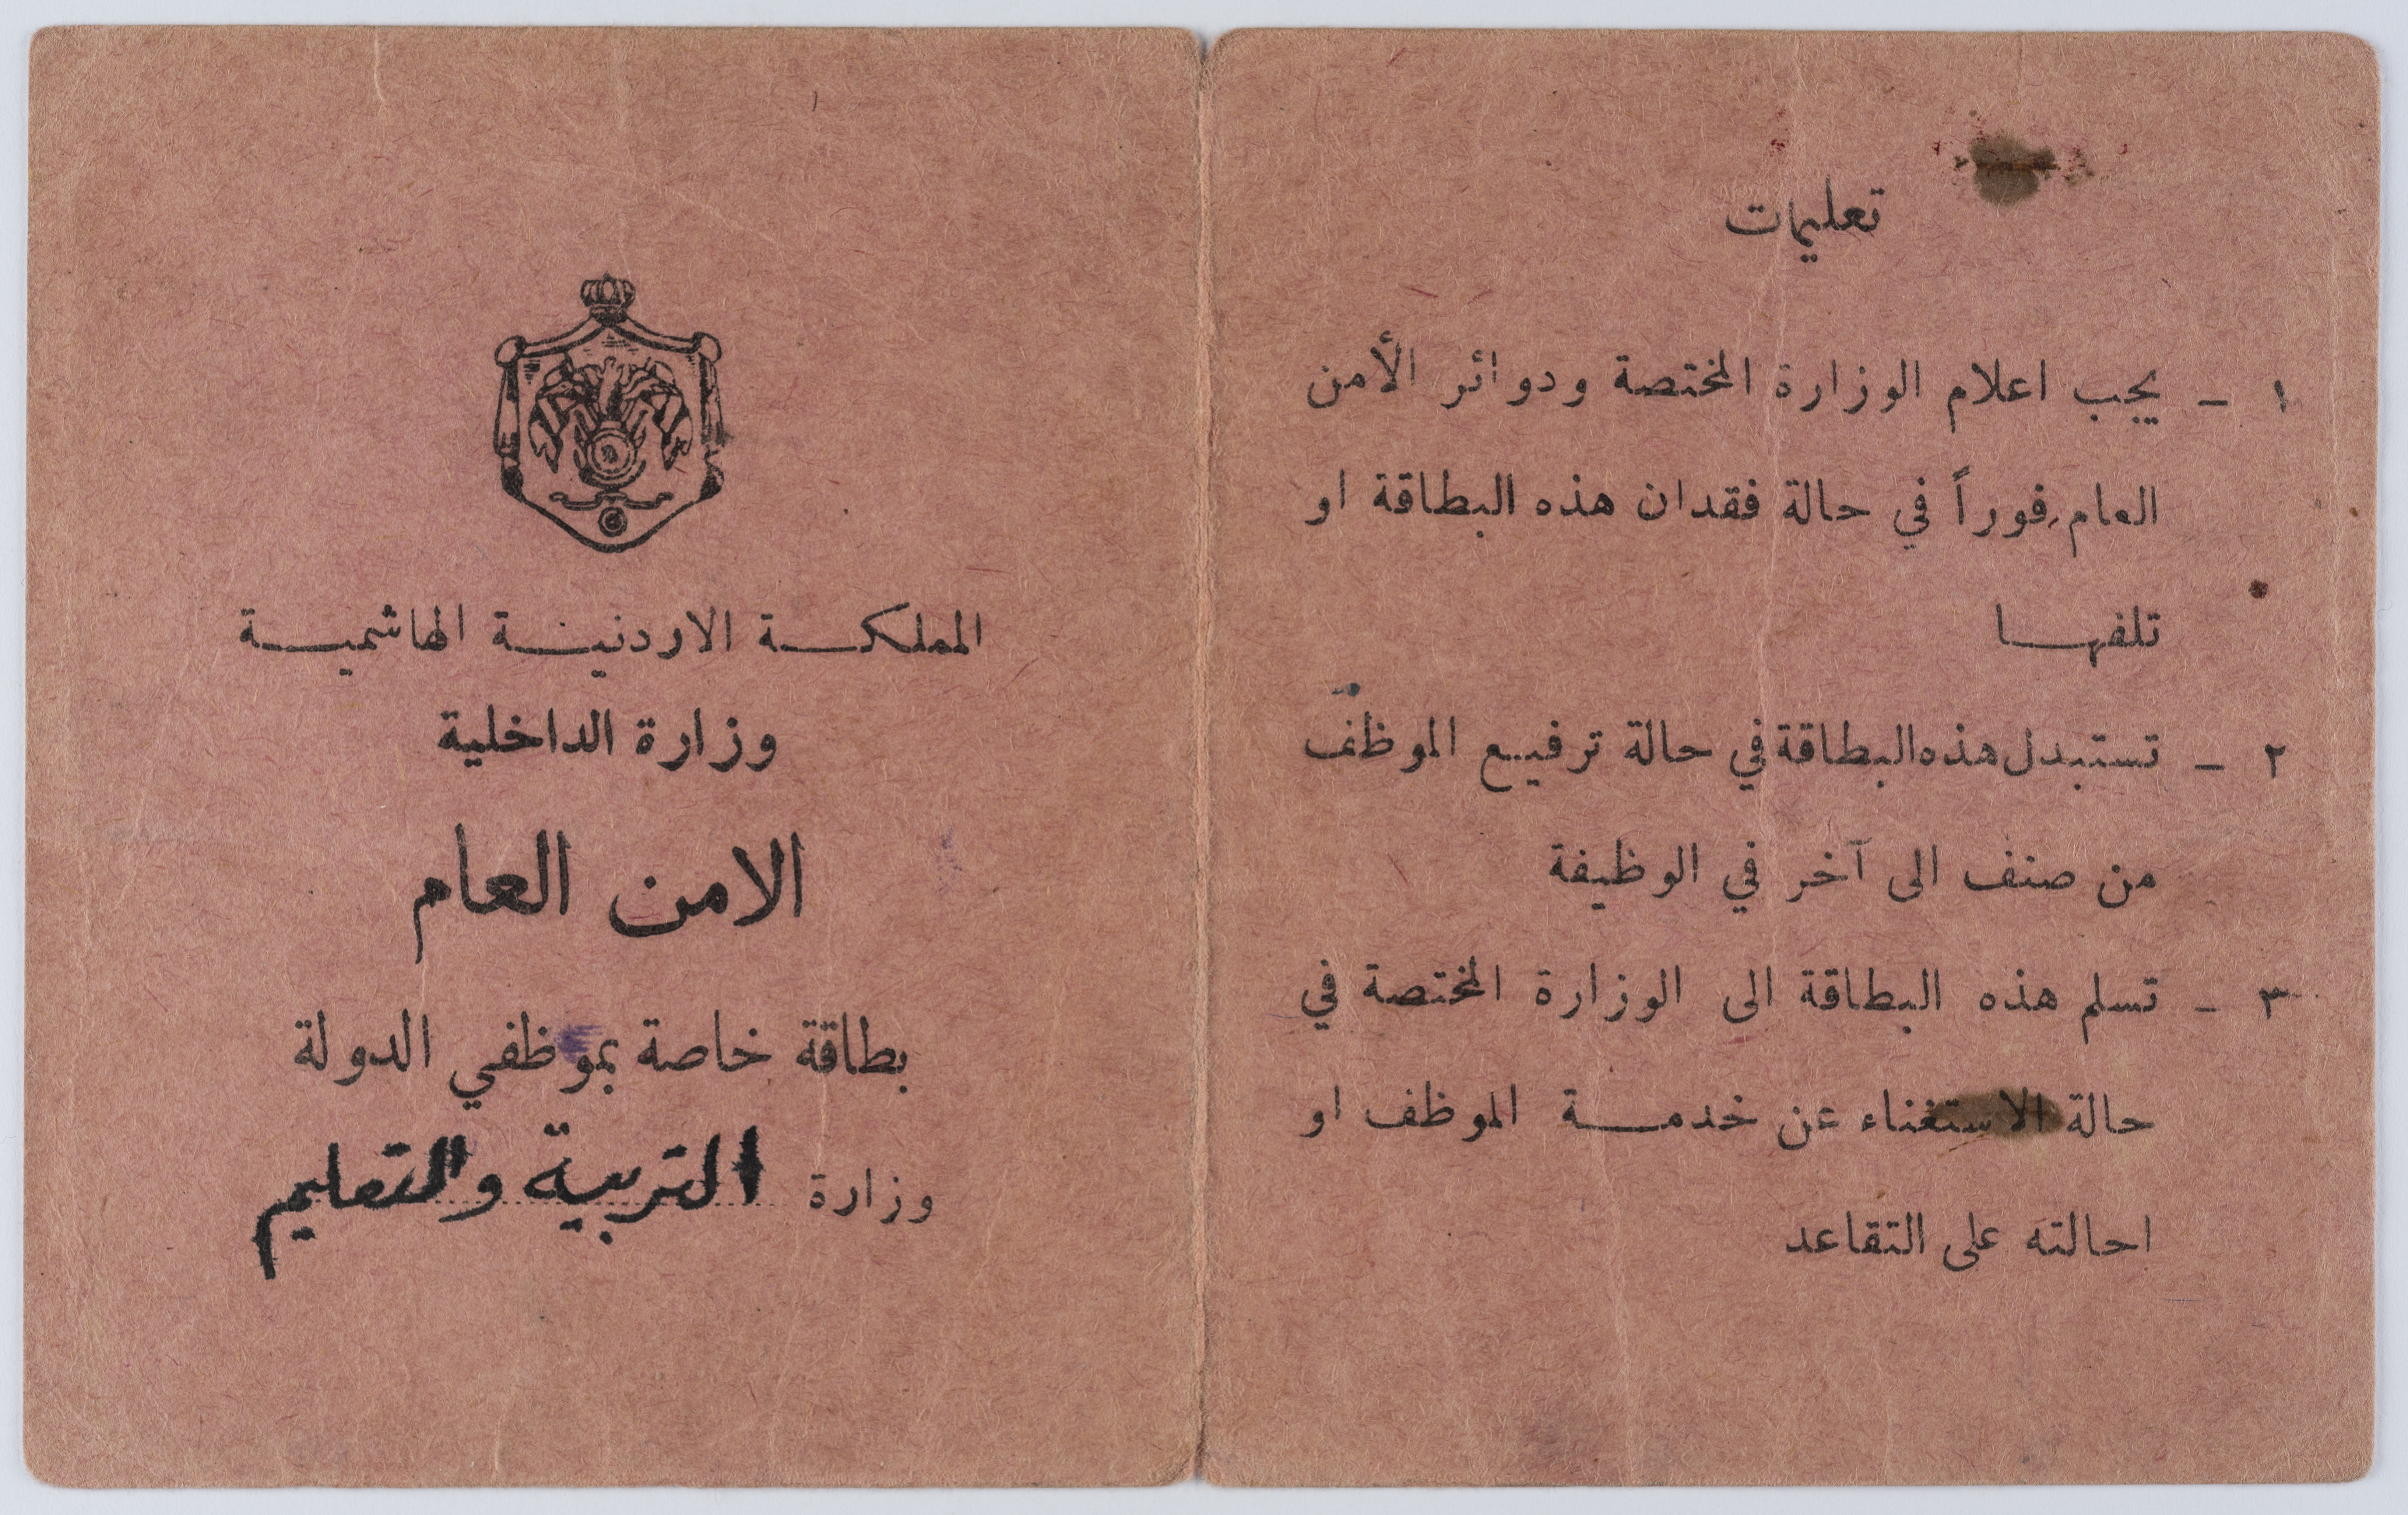 المملكة الاردنية الهاشمية
وزارة الداخلية
الامن العام
بطاقة خاصة بموظفي الدولة
وزارة التربية والتعليم
تعليمات
١ - يجب اعلام الوزارة المختصة ودوائر الأمن
العام فوراً في حالة فقدان هذه البطاقة او
تلفها
٢ - تستبدل هذه البطاقة في حالة ترفيع الموظف
من صنف الى آخر في الوظيفة
٣ - تسلم هذه البطاقة الى الوزارة المختصة في
حالة الاستغناء عن خدمة الموظف او
احالته على التقاعد